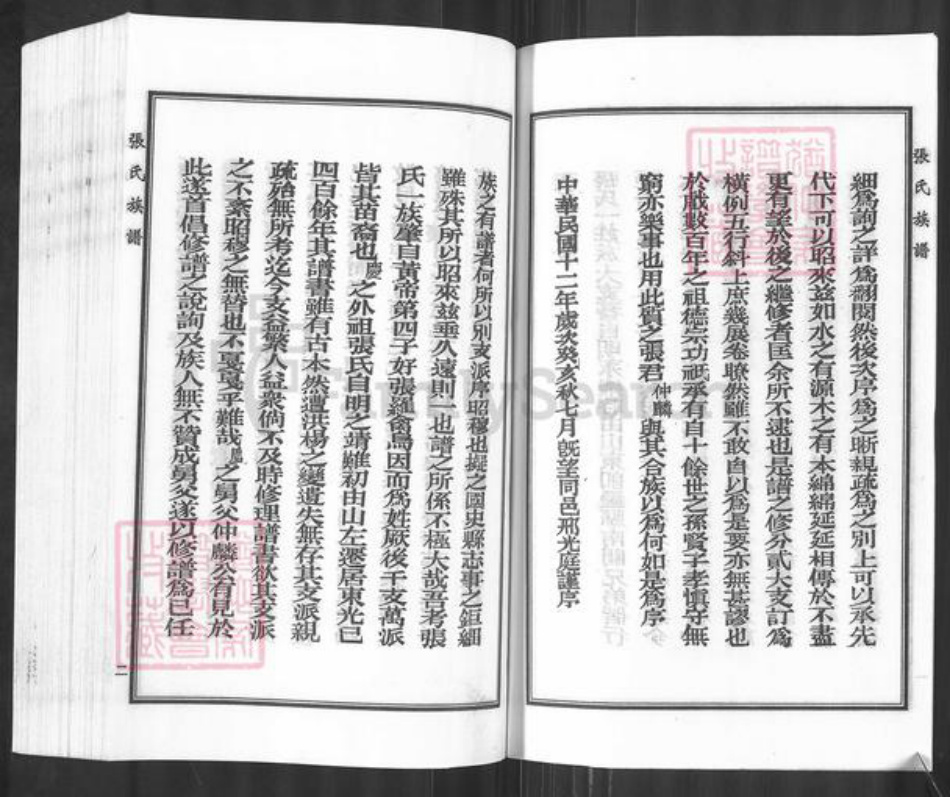 張氏族譜
細為詢之評為翻閱然後次序為之晰親疏為之別上可以承先
代下可以昭來茲如水之有源木之有本綿綿延延相傳於不盡
更有望於後之繼修者匡余所不逮也是譜之修分貳大支訂為
橫例五行斜上庶幾展卷瞭然雖不敢自以為是要亦無甚謬也
於戲數百年之祖德宗功祇承有自十餘世之孫賢子孝慎守無
窮亦樂事也用此質之張君仲麟與其合族以為何如是為序
中華民國十二年歲次癸亥秋七月既望同邑邢光庭謹序
族之有譜者何所以別支派序昭穆也擬之國史縣志事之鉅細
雖殊其所以昭來茲垂久遠則一也譜之所係不極大哉吾考張
氏一族肇自黃帝第四子好張羅禽鳥因而為姓厥後千支萬派
皆其苗裔也慶之外祖張氏自明之靖難初由山左遷居東光已
四百餘年其譜書雖有古本然遭洪楊之變遺失無存其支派親
疏殆無所考迄今支益繁人益衆倘不及時修理譜書欲其支派
之不紊昭穆之無替也不戛戛乎難哉慶之舅父仲麟公有見於
此遂首倡修譜之說詢及族人無不贊成舅父遂以修譜為已任
張氏族譜
二
FamilySearch